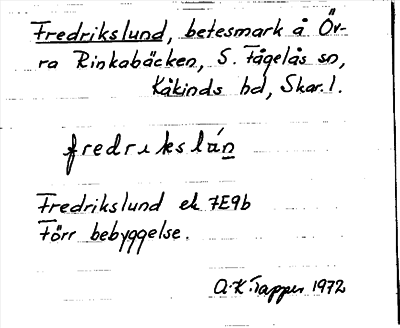 Fredrikslund, betesmark å Öv-
ra Rinkabäcken, S. Fågelås sn,
Kåkinds hd, Skar. l.
fredrikslún
Fredrikslund ek 7E9b
Förr bebyggelse.
A.-K. Tapper 1972